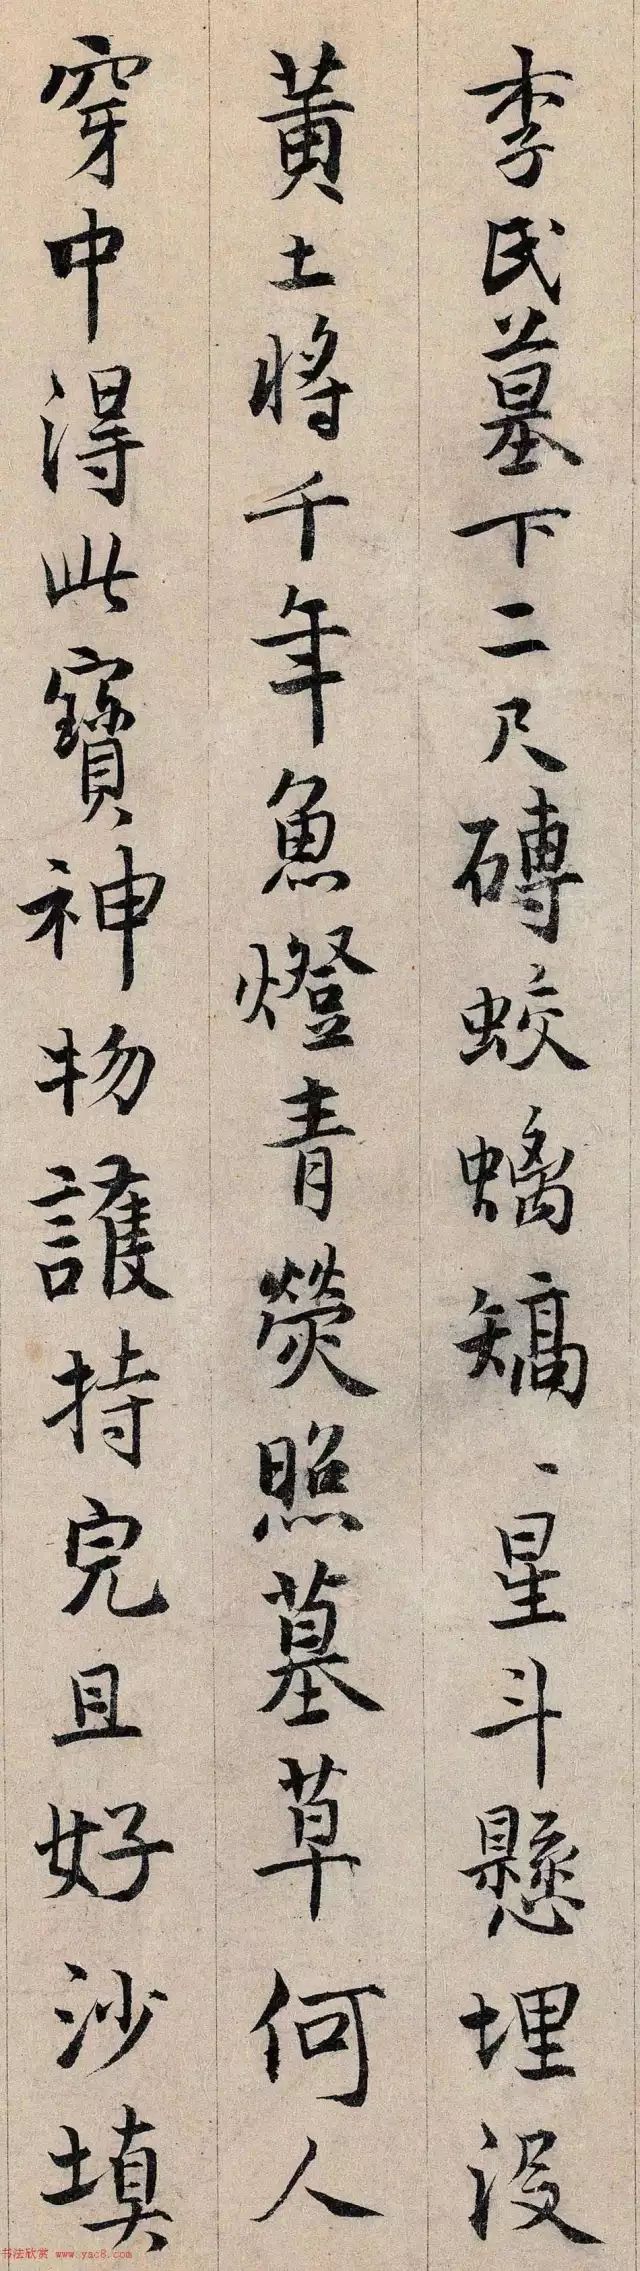 李氏墓下二尺磚蛟螭矯、星斗懸埋沒
黃土將千年魚燈青熒照墓草何人
穿中得此寶神物護持完且好沙填
书法欣赏 www.yac8.com